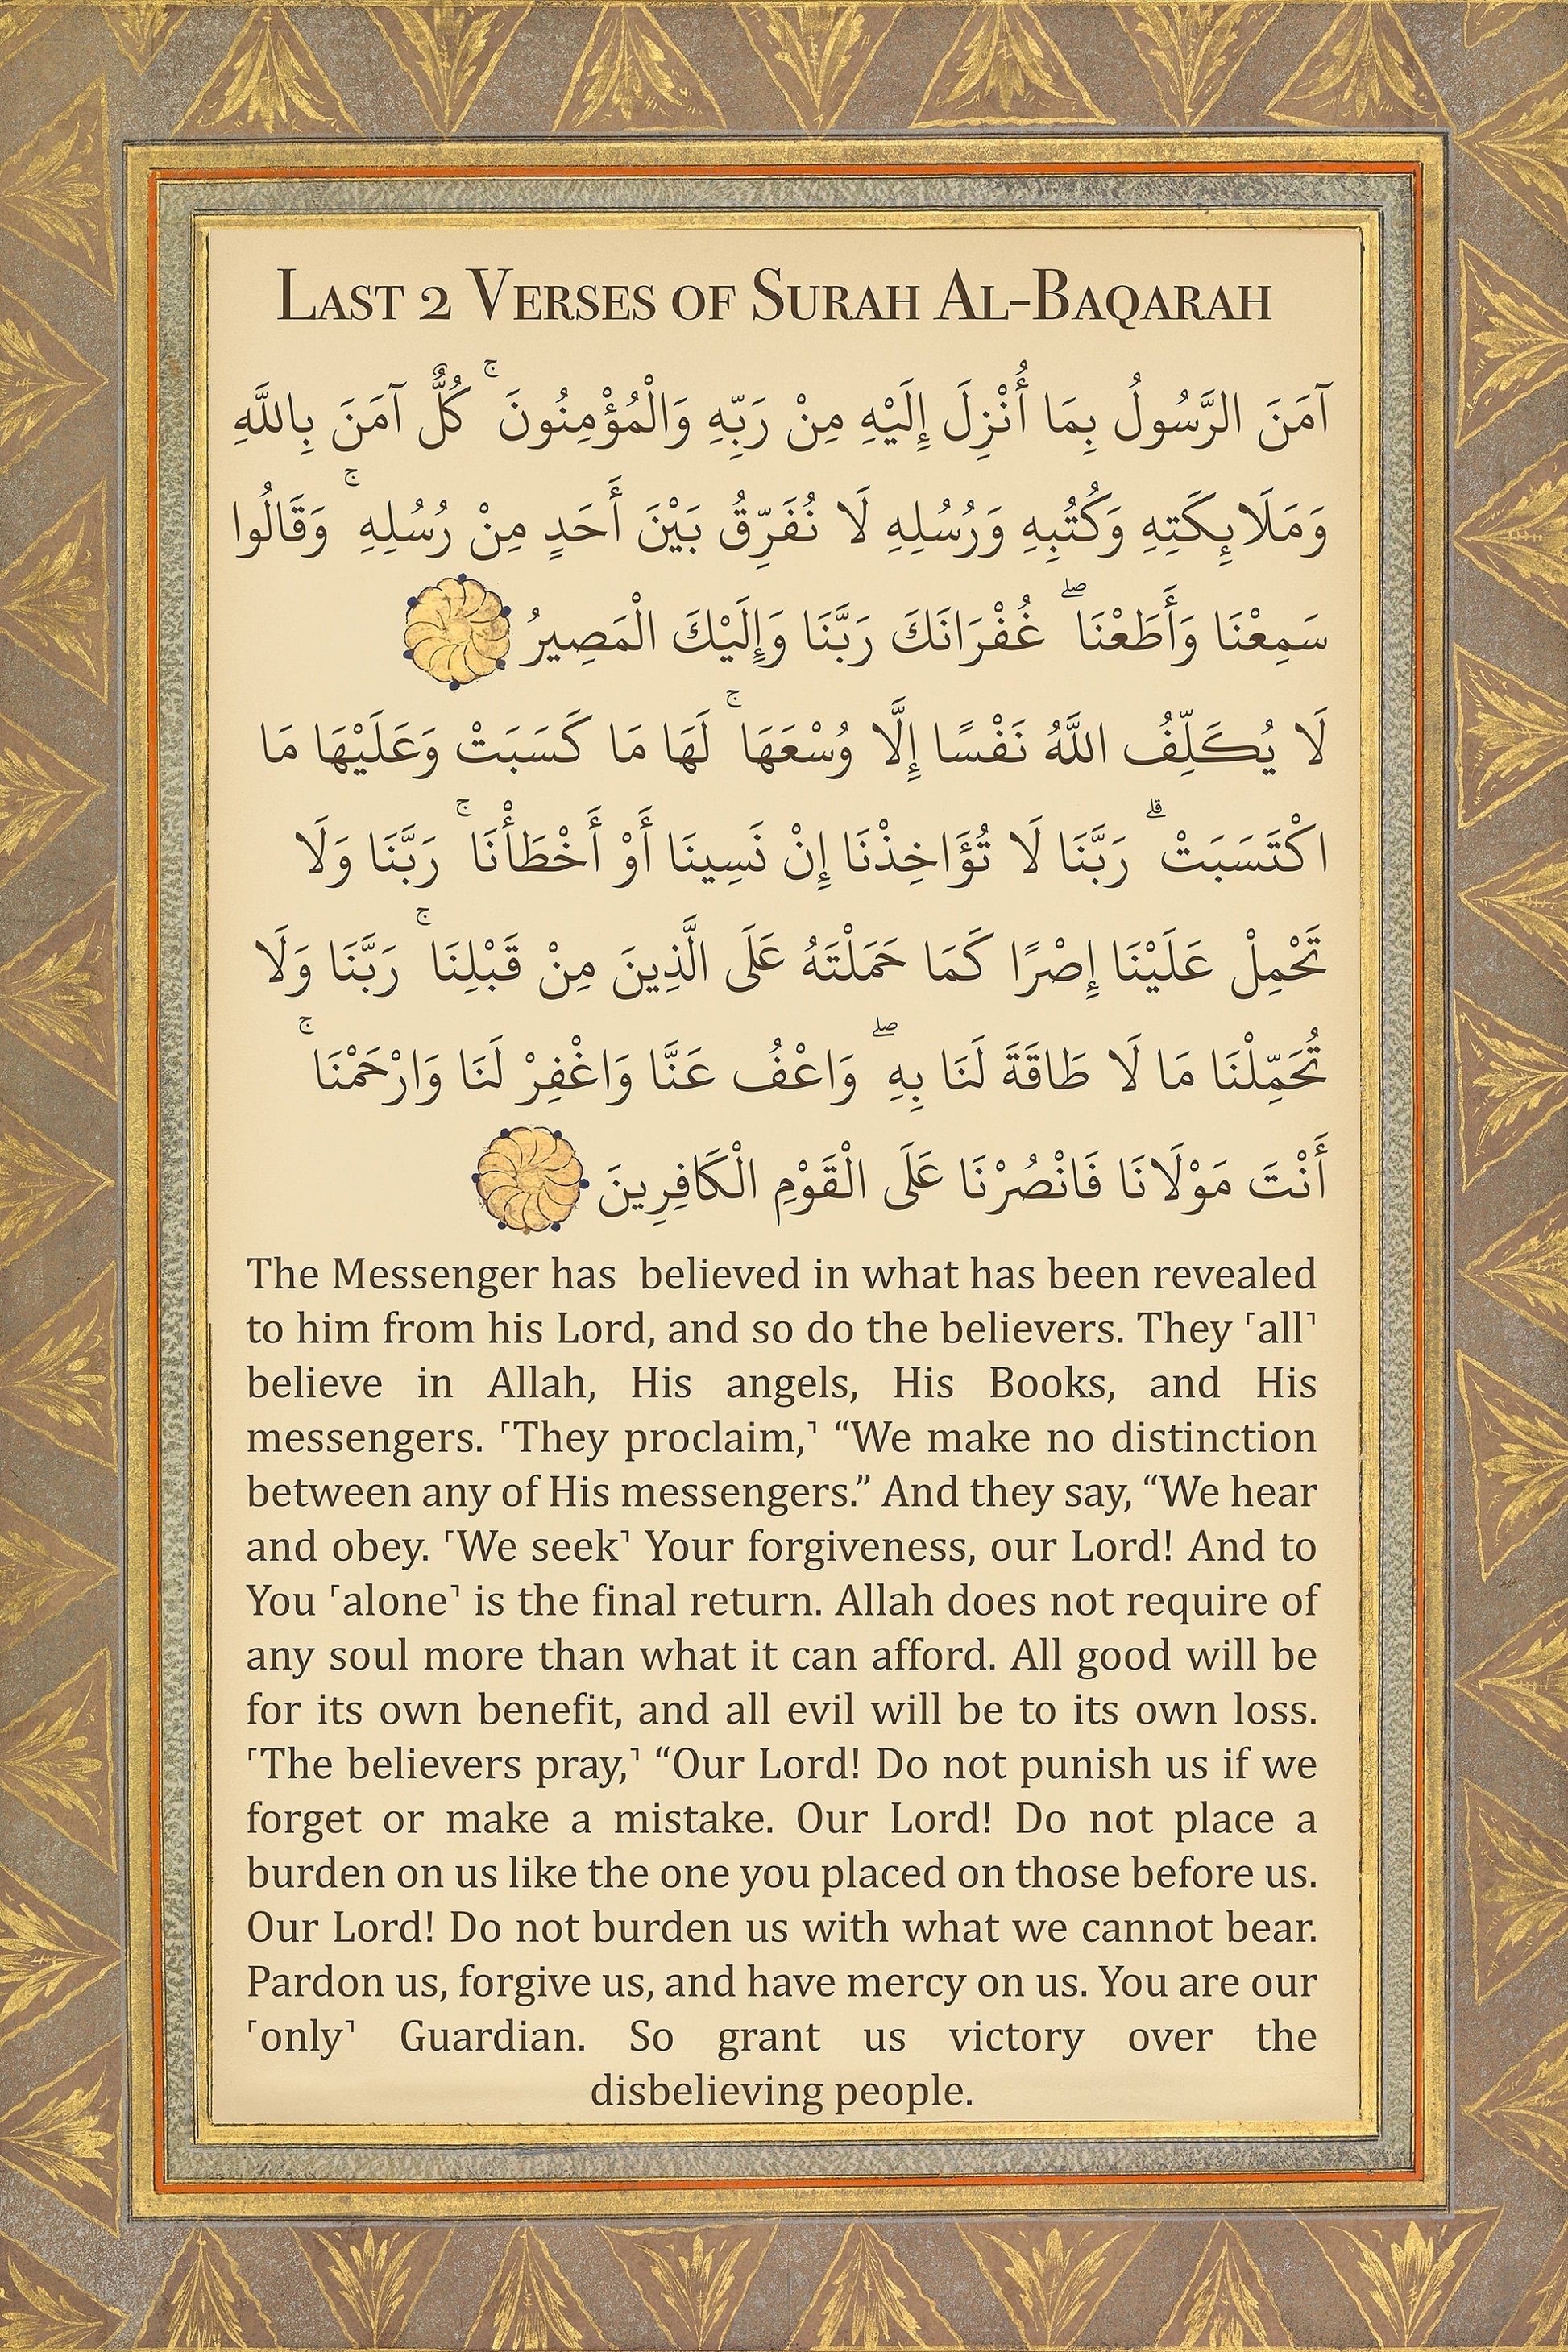 Last 2 Verses of Surah Al-Baqarah
آمَنَ الرَّسُولُ بِمَا أُنْزِلَ إِلَيْهِ مِنْ رَبِّهِ وَالْمُؤْمِنُونَ ۚ كُلٌّ آمَنَ بِاللَّهِ
وَمَلَايِكَتِهِ وَكُتُبِهِ وَرُسُلِهِ لَا نُفَرِّقُ بَيْنَ أَحَدٍ مِنْ رُسُلِهِ ۚ وَقَالُوا
سَمِعْنَا وَأَطَعْنَا ۖ غُفْرَانَكَ رَبَّنَا وَإِلَيْكَ الْمَصِيرُ
لَا يُكَلِّفُ اللَّهُ نَفْسًا إِلَّا وُسْعَهَا ۚ لَهَا مَا كَسَبَتْ وَعَلَيْهَا مَا
اكْتَسَبَتْ ۗ رَبَّنَا لَا تُؤَاخِذْنَا إِنْ نَسِينَا أَوْ أَخْطَأْنَا ۚ رَبَّنَا وَلَا
تَحْمِلْ عَلَيْنَا إِصْرًا كَمَا حَمَلْتَهُ عَلَى الَّذِينَ مِنْ قَبْلِنَا ۚ رَبَّنَا وَلَا
تُحَمِّلْنَا مَا لَا طَاقَةَ لَنَا بِهِ ۖ وَاعْفُ عَنَّا وَاغْفِرْ لَنَا وَارْحَمْنَا ۚ
أَنْتَ مَوْلَانَا فَانْصُرْنَا عَلَى الْقَوْمِ الْكَافِرِينَ
The Messenger has believed in what has been revealed
to him from his Lord, and so do the believers. They ˹all˺
believe in Allah, His angels, His Books, and His
messengers. ˹They proclaim,˺ “We make no distinction
between any of His messengers.” And they say, “We hear
and obey. ˹We seek˺ Your forgiveness, our Lord! And to
You ˹alone˺ is the final return. Allah does not require of
any soul more than what it can afford. All good will be
for its own benefit, and all evil will be to its own loss.
˹The believers pray,˺ “Our Lord! Do not punish us if we
forget or make a mistake. Our Lord! Do not place a
burden on us like the one you placed on those before us.
Our Lord! Do not burden us with what we cannot bear.
Pardon us, forgive us, and have mercy on us. You are our
˹only˺ Guardian. So grant us victory over the
disbelieving people.